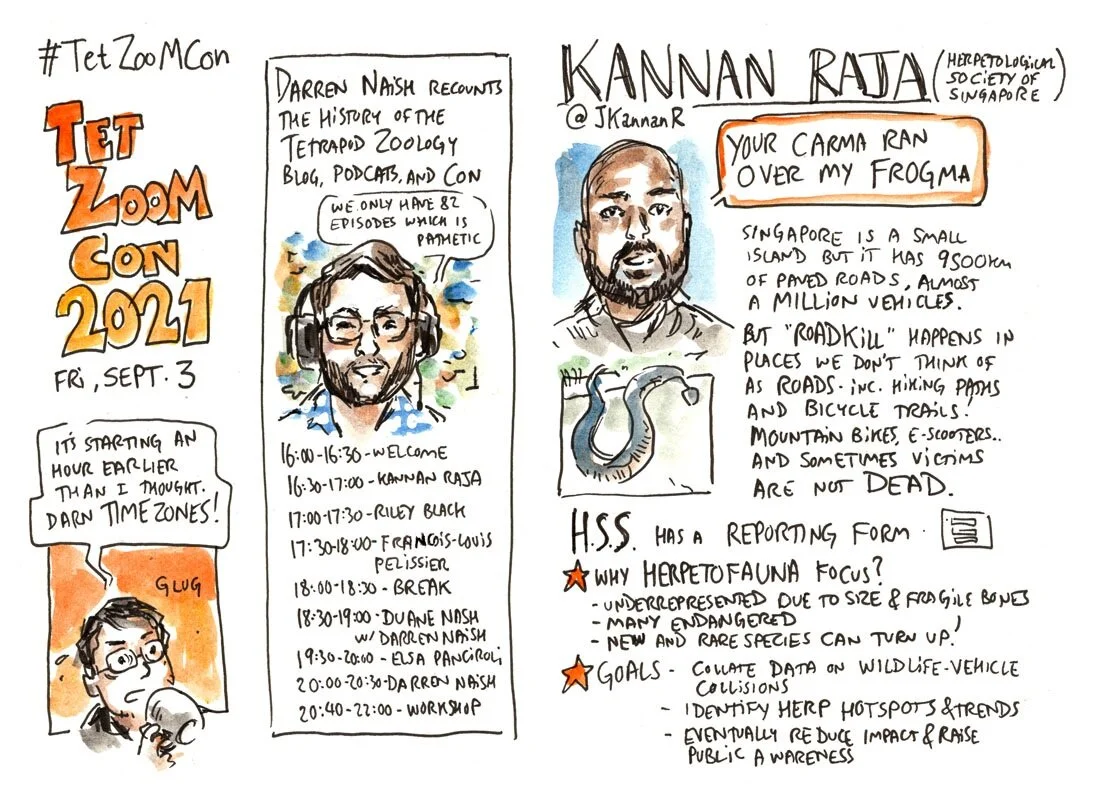 #TetZooMCon
TET
ZOOM
CON
2021
FRI, SEPT. 3
IT'S STARTING AN
HOUR EARLIER
THAN I THOUGHT.
DARN TIME ZONES!
GLUG
DARREN NAISH RECOUNTS
THE HISTORY OF THE
TETRAPOD ZOOLOGY
BLOG, PODCATS, AND CON
WE ONLY HAVE 82
EPISODES WHICH IS
PATHETIC
16:00-16:30-WELCOME
16:30-17:00-KANNAN RAJA
17:00-17:30-RILEY BLACK
17:30-18:00-FRANCOIS-LOUIS
PELISSIER
18:00-18:30-BREAK
18:30-19:00-DUANE NASH
W/ DARREN NAISH
19:30-20:00-ELSA PANCIROLI
20:00-20:30-DARREN NAISH
20:40-22:00-WORKSHOP
KANNAN RAJA (HERPETOLOGICAL
SOCIETY OF
SINGAPORE)
@JKannanR
YOUR CARMA RAN
OVER MY FROGMA
SINGAPORE IS A SMALL
ISLAND BUT IT HAS 9500km
OF PAVED ROADS, ALMOST
A MILLION VEHICLES.
BUT "ROADKILL" HAPPENS IN
PLACES WE DON'T THINK OF
AS ROADS- INC. HIKING PATHS
AND BICYCLE TRAILS!
MOUNTAIN BIKES, E-SCOOTERS..
AND SOMETIMES VICTIMS
ARE NOT DEAD.
H.S.S. HAS A REPORTING FORM
WHY HERPETOFAUNA FOCUS?
- UNDERREPRESENTED DUE TO SIZE & FRAGILE BONES
- MANY ENDANGERED
- NEW AND RARE SPECIES CAN TURN UP!
GOALS - COLLATE DATA ON WILDLIFE-VEHICLE
COLLISIONS
- IDENTIFY HERP HOTSPOTS & TRENDS
- EVENTUALLY REDUCE IMPACT & RAISE
PUBLIC AWARENESS